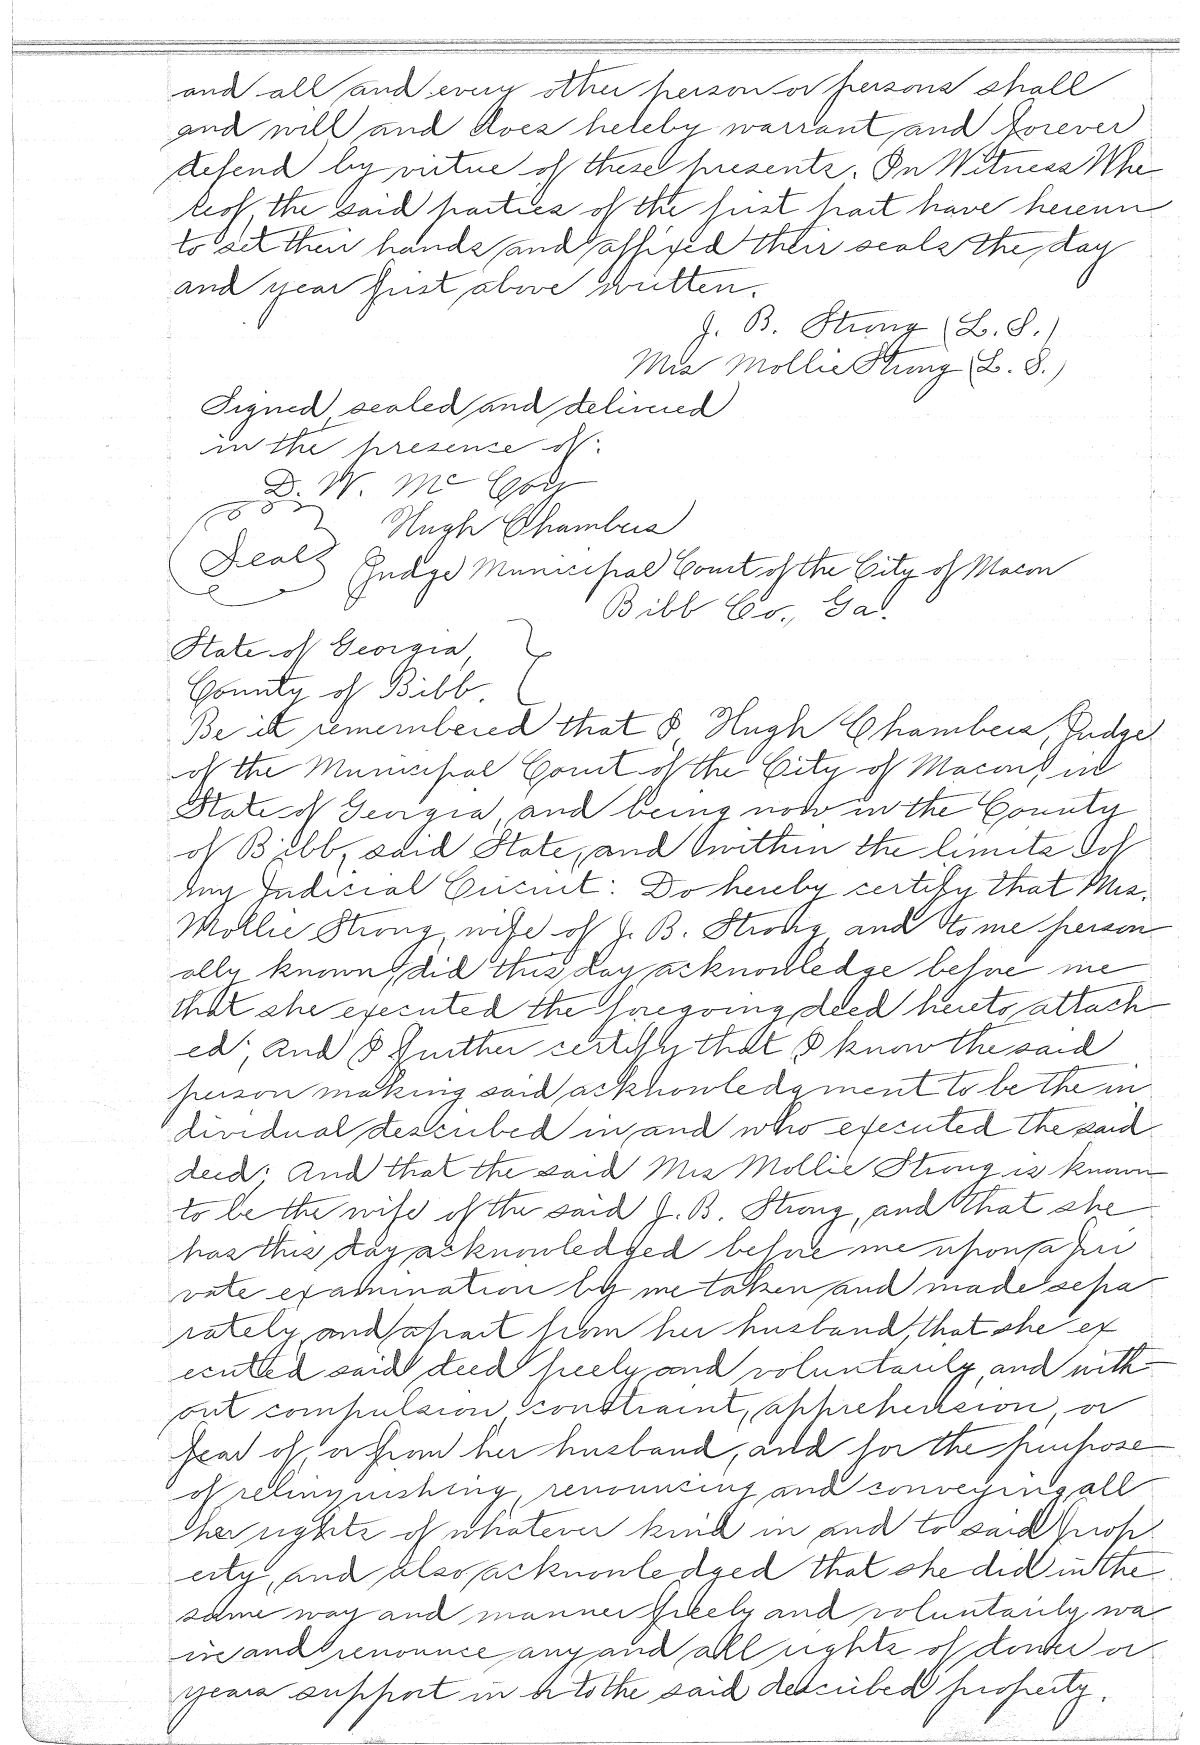 and all and every other person or persons shall
and will and does hereby warrant and forever
defend by virtue of these presents. In Witness Whe
reof, the said parties of the first part have hereun
to set their hands and affixed their seals the day
and year first above written.
J. B. Strong (L. S.)
Mrs Mollie Strong (L. S.)
Signed, sealed and delivered
in the presence of:
D. W. McCoy
Hugh Chambers
Seal
Judge Municipal Court of the City of Macon
Bibb Co., Ga.
State of Georgia,
County of Bibb.
Be it remembered that I, Hugh Chambers, Judge
of the Municipal Court of the City of Macon, in
State of Georgia, and being now in the County
of Bibb, said State, and within the limits of
my Judicial Circuit: Do hereby certify that Mrs.
Mollie Strong, wife of J. B. Strong, and to me person
ally known, did this day acknowledge before me
that she executed the foregoing deed hereto attach
ed; And I further certify that I know the said
person making said acknowledgment to be the in
dividual described in and who executed the said
deed; And that the said Mrs Mollie Strong is known
to be the wife of the said J. B. Strong, and that she
has this day acknowledged before me upon a pri
vate examination by me taken and made sepa
rately and apart from her husband, that she ex
ecuted said deed freely and voluntarily, and with
out compulsion, constraint, apprehension, or
fear of, or from her husband, and for the purpose
of relinquishing, renouncing and conveying all
her rights of whatever kind in and to said prop
erty, and also acknowledged that she did in the
same way and manner freely and voluntarily wa
ive and renounce any and all rights of dower or
years support in or to the said described property.